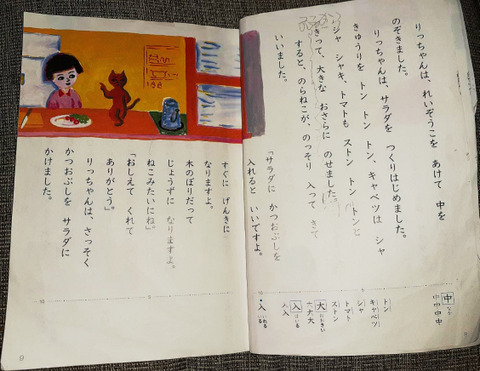 りっちゃんは、れいぞうこを あけて 中を
のぞきました。
りっちゃんは、サラダを つくりはじめました。
きゅうりを トン トン トン、キャベツは シャ
シャ シャキ、トマトも ストン トン トンと
きって、大きな おさらに のせました。
すると、のらねこが、のっそり 入って きて
いいました。
「サラダに かつおぶしを
入れると いいですよ。
すぐに げんきに
なりますよ。
木のぼりだって
じょうずに なりますよ。
ねこみたいにね」
「おしえて くれて
ありがとう」
りっちゃんは、さっそく
かつおぶしを サラダに
かけました。
中 なか
中 中 中 中
トン
キャベツ
シャ
トマト
ストン
大 おおきい
一 ナ 大
入 はいる
ノ 入
・入 いれる
9